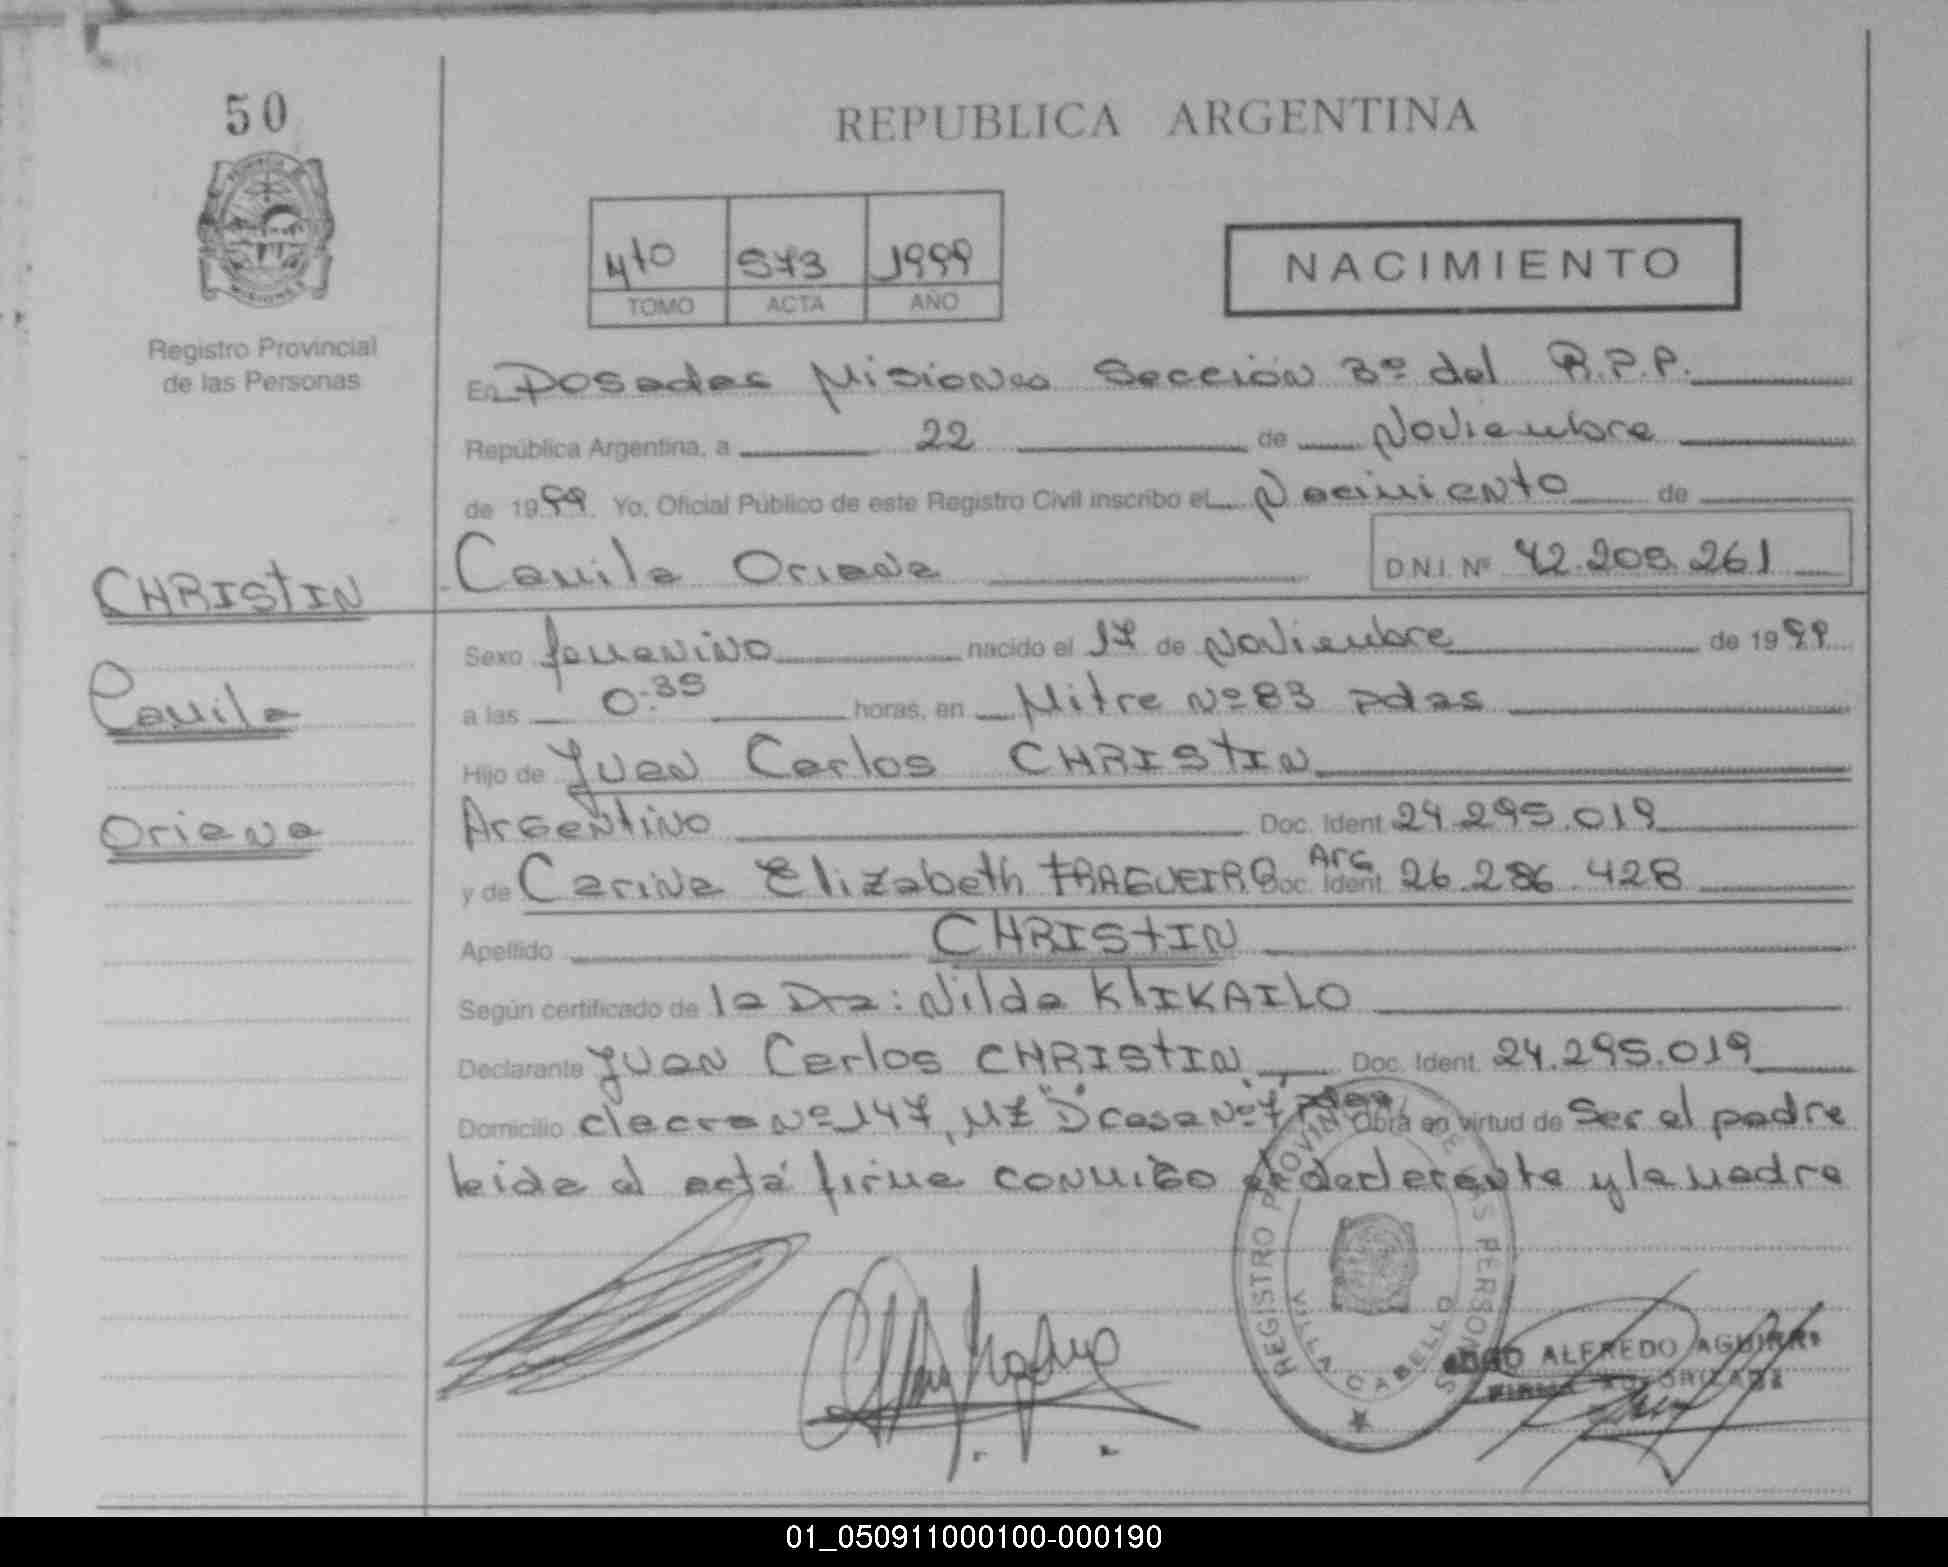 50
REPUBLICA ARGENTINA
4to 573 1999
TOMO ACTA AÑO
NACIMIENTO
Registro Provincial
de las Personas
En Posadas Misiones Sección 3º del R.P.P.
República Argentina, a 22 de Noviembre
de 1999 Yo, Oficial Público de este Registro Civil inscribo el Nacimiento de
Camila Oriana D.N.I. Nº 42.208.261
CHRISTIN
Camila
Oriana
Sexo femenino nacido el 17 de Noviembre de 1999
a las 0:35 horas, en Mitre Nº 83 pdas
Hijo de Juan Carlos CHRISTIN
Argentino Doc. Ident. 24.295.019
y de Carina Elizabeth FRAGUEIRO Arg Doc. Ident. 26.286.428
Apellido CHRISTIN
Según certificado de la Dra: Nilda KLIKAILO
Declarante Juan Carlos CHRISTIN Doc. Ident. 24.295.019
Domicilio chacra Nº 147, MZ "D" casa Nº 7, pdas Obra en virtud de Ser el padre
leida el acta firma conmigo el declarante y la madre
REGISTRO PROVINCIAL DE LAS PERSONAS
VILLA CABELLO
ALFREDO AGUIRRE
FIRMA AUTORIZADA
01_050911000100-000190